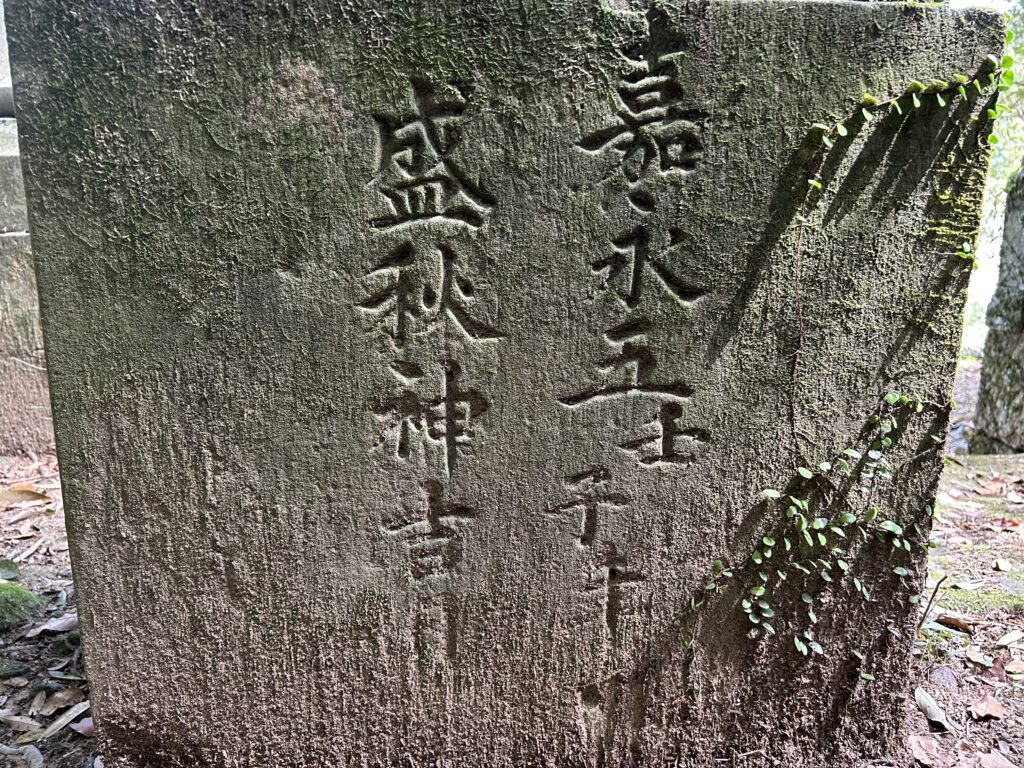 嘉永五壬子年
盛秋神吉